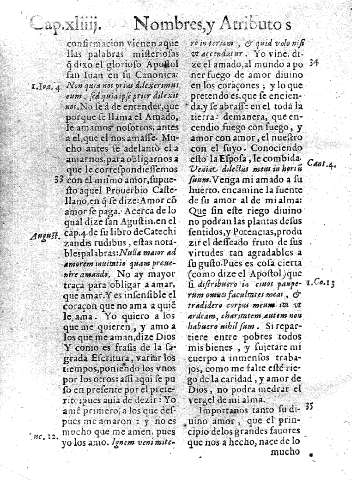 Cap. xliiij. Nombres, y Atributos
confirmacion vienen aque
llas palabras misteriosas
q̃ dixo el glorioso Apostol
san Iuan en su Canonica:
1. Ioa. 4. Non quia nos prius dilexerimus
eum, sed quia ipse prior dilexit
nos. No se à de entender, que
porque se llama el Amado,
le amamos nosotros, antes
a el, que el nos amasse. Mu-
cho antes se adelantò el a
amarnos, para obligarnos a
que le correspondiessemos
33 con el mismo amor, supue-
sto aquel Prouerbio Caste-
llano, en q̃ se dize: Amor cõ
amor se paga. Acerca de lo
qual dize san Agustin, en el
August. cap. 4. de su libro de Catechi
zandis rudibus, estas nota-
bles palabras: Nulla maior ad
amorem inuitatio quam praeue-
nire amando. No ay mayor
traça para obligar a amar,
que amar. Y es insensible el
coraçon que no ama a quiẽ
le ama. Yo quiero a los
que me quieren, y amo a
los que me aman, dize Dios
Y como es frasis de la sa-
grada Escritura, variar los
tiempos, poniendo los vnos
por los otros: assi aqui se pu
so en presente por el prete-
rito: pues auia de dezir: Yo
amè primero, a los que des-
pues me amaron: y no es
mucho que me amen, pues
Luc. 12. yo los amo. Ignem veni mite-
re in terram, & quid volo nisi
vt accendatur. Yo vine, di-
34 ze el amado, al mundo a po
ner fuego de amor diuino
en los coraçones; y lo que
pretendo es, que se encien-
da, y se abrasse en el toda la
tierra: demanera, que en-
cendio fuego con fuego, y
amor con amor, el nuestro
con el suyo. Conociendo
esto la Esposa, le combida.
Cant. 4. Veniat dilectus meus in hortũ
suum. Venga mi amado a su
huerto, encamine la fuente
de su amor al de mi alma:
Que sin este riego diuino
no podran las plantas de sus
sentidos, y Potencias, produ
zir el desseado fruto de sus
virtudes tan agradables a
su gusto. Pues es cosa cierta
(como dize el Apostol) que
1. Co. 13 si distribuero in cibos paupe-
rum omnes facultates meas, &
tradidero corpus meum ita vt
ardeam, charitatem autem non
habuero nihil sum. Si repar-
tiere entre pobres todos
mis bienes, y sujetare mi
cuerpo a inmensos traba-
jos, como me falte este rie-
go de la caridad, y amor de
Dios, no podra medrar el
vergel de mi alma.
35 Importanos tanto su di-
uino amor, que el princi-
pio de los grandes fauores
que nos a hecho, nace de lo
mucho